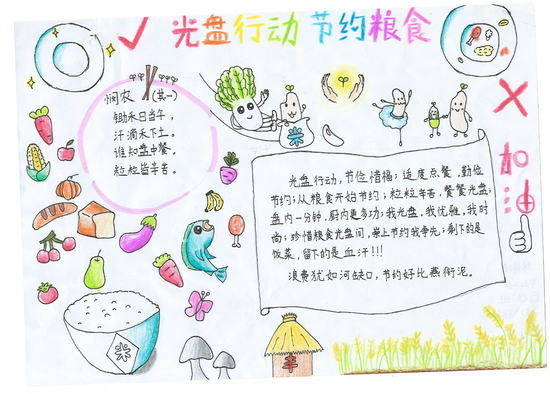 光盘行动 节约粮食
悯农 (其一)
锄禾日当午,
汗滴禾下土。
谁知盘中餐,
粒粒皆辛苦。
米
加油
光盘行动,节俭惜福;适度点餐,勤俭
节约;从粮食开始节约;粒粒辛苦,餐餐光盘;
盘内一分钟,厨内更多功;我光盘,我优雅,我时
尚;珍惜粮食光盘间,举上节约我争先;剩下的是
饭菜,留下的是血汗!!!
浪费犹如河缺口,节约好比燕衔泥。
米
丰